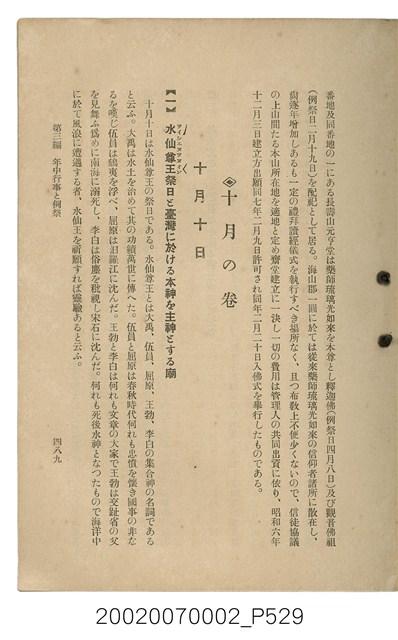 番地及同番地の一にある長壽山元亨堂は藥師琉璃光如來を本尊とし釋迦佛(例祭日四月八日)及び觀音佛祖
(例祭日二月十九日)を配祀として居る。海山郡一圓に於ては從來藥師琉璃光如來の信仰者諸所に散在し、
尙逐年增加しあるも一定の禮拜讀經儀式を執行すべき場所なく、且つ布敎上不便少くないので、信徒協議
の上山間たる本山所在地を適地と定め齋堂建立に一決し一切の費用は管理人の共同出資に依り、昭和六年
十二月三日建立方出願同七年二月九日許可され同年二月二十日入佛式を擧行したものである。
十月の卷
十月十日
【一】水仙尊王祭日と臺灣に於ける本神を主神とする廟
十月十日は水仙尊王の祭日である。水仙尊王とは大禹、伍員、屈原、王勃、李白の集合神の名詞である
と云ふ。大禹は水土を治めて其の功績萬世に傳へた。伍員と屈原は春秋時代何れも忠憤を懷き國事の非な
るを嘆じ伍員は鴟夷を浮べ、屈原は汨羅江に沈んだ。王勃と李白は何れも文章の大家で王勃は交趾省の父
を見舞ふ爲めに南海に溺死し、李白は俗塵を秕視し宋石に沈んだ。何れも死後水神となつたもので海洋中
に於て風浪に遭遇する者、水仙王を祈願すれば靈驗あると云ふ。
第三編 年中行事と例祭
四八九
20020070002_P529